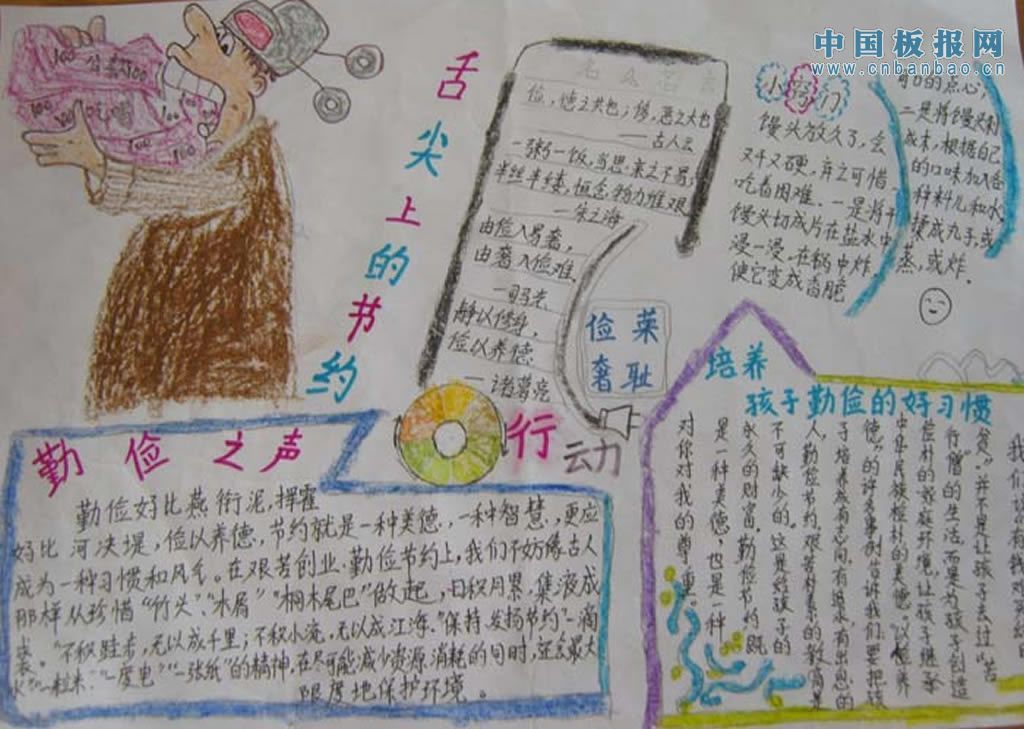 中国板报网
www.cnbanbao.cn
100
公款
100
吃喝
100
100
100
100
舌尖上的节约
行动
俭，德之共也；侈，恶之大也
——古人云
一粥一饭，当思来之不易，
半丝半缕，恒念物力维艰
——朱之海
由俭入易奢，
由奢入俭难。
静以修身，
俭以养德
——诸葛亮
俭 莱
奢 耻
小窍门
馒头放久了，会
又干又硬，弃之可惜，
吃着困难。一是将干
馒头切成片在盐水中
浸一浸，在锅中炸，
使它变成香脆
可口的点心；
二是将馒头剁
成末，根据自己
的口味加入各
种料儿和水
揉成丸子，或
蒸，或炸。
勤俭之声
勤俭好比燕衔泥，挥霍
好比 河决堤，俭以养德，节约就是一种美德，一种智慧，更应
成为一种习惯和风气。在艰苦创业、勤俭节约上，我们不妨像古人
那样从珍惜“竹头”、“木屑”“桐木尾巴”做起，日积月累，集液成
裘。“不积跬步，无以成千里；不积小流，无以成江海。”保持、发扬节约“一滴
水”“一粒米”、“一度电”“一张纸”的精神，在尽可能减少资源消耗的同时，还会最大
限度地保护环境。
培养
孩子勤俭的好习惯
贫”，并不是让孩子去过“苦
行僧”的生活，而是为孩子创造
俭朴的家庭环境，让孩子继承
中华民族俭朴的美德。“以俭养
德”的许多事例告诉我们：要把孩
子培养成有志向、有追求、有出息的
人，勤俭节约、艰苦朴素的教育是
不可缺少的。这是给孩子的
永久的财富。勤俭节约既
是一种美德，也是一种
对你对我的尊重。